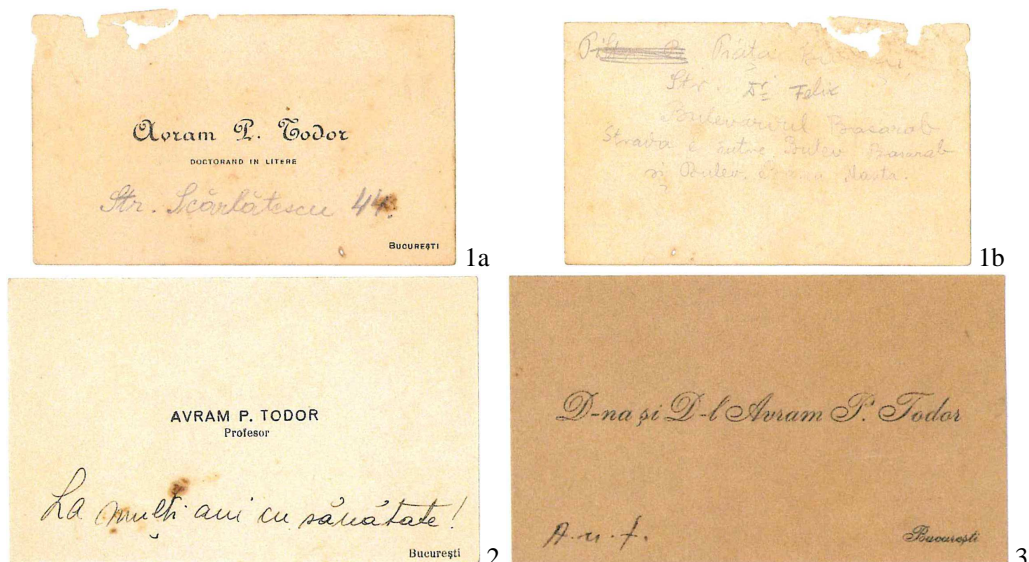 Avram P. Todor
DOCTORAND IN LITERE
Str. Scărlătescu 44.
BUCUREȘTI
1a
Piața
Str. Dr Felix
Bulevardul Basarab
Strada e între Bulev. Basarab
și Bulev.
1b
AVRAM P. TODOR
Profesor
La mulți ani cu sănătate!
București
2
D-na și D-l Avram P. Todor
A. n. f.
București
3